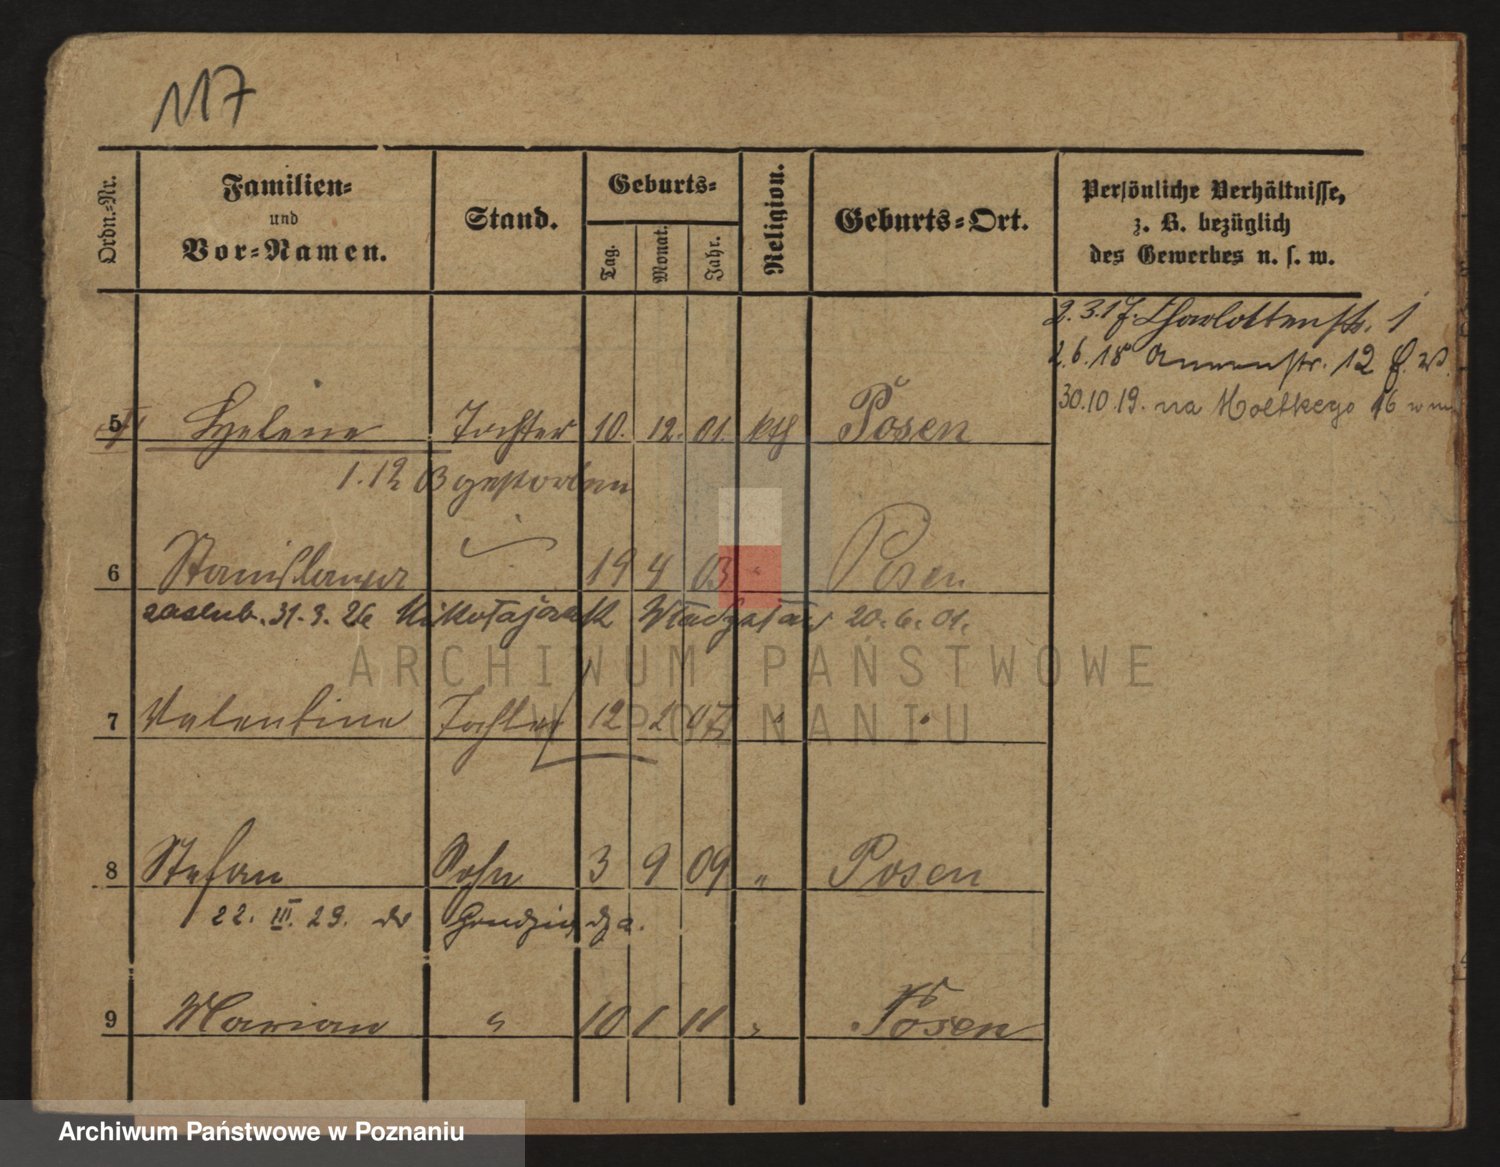 117
Ordn.-Nr.
Familien-
und
Vor-Namen.
Stand.
Geburts-
Tag.
Monat.
Jahr.
Religion.
Geburts-Ort.
Persönliche Verhältnisse,
z. B. bezüglich
des Gewerbes u. s. w.
2.3.17. Charlottenstr. 1
2.6.18 Annenstr. 12
30.10.19. na Moltkego 16
5 Helene Tochter 10. 12. 01. kth Posen
1.12 03 gestorben
6 Stanislawa 19 4 03 " Posen
zaślub. 31.3.26 Mikołajczak Władysław 20.6.01.
7 Valentine Tochter 12 2 07 " "
8 Stefan Sohn 3 9 09 " Posen
22. III. 29. do Grudziądza.
9 Marian " 10 1 11 " Posen
ARCHIWUM PAŃSTWOWE
W POZNANIU
Archiwum Państwowe w Poznaniu